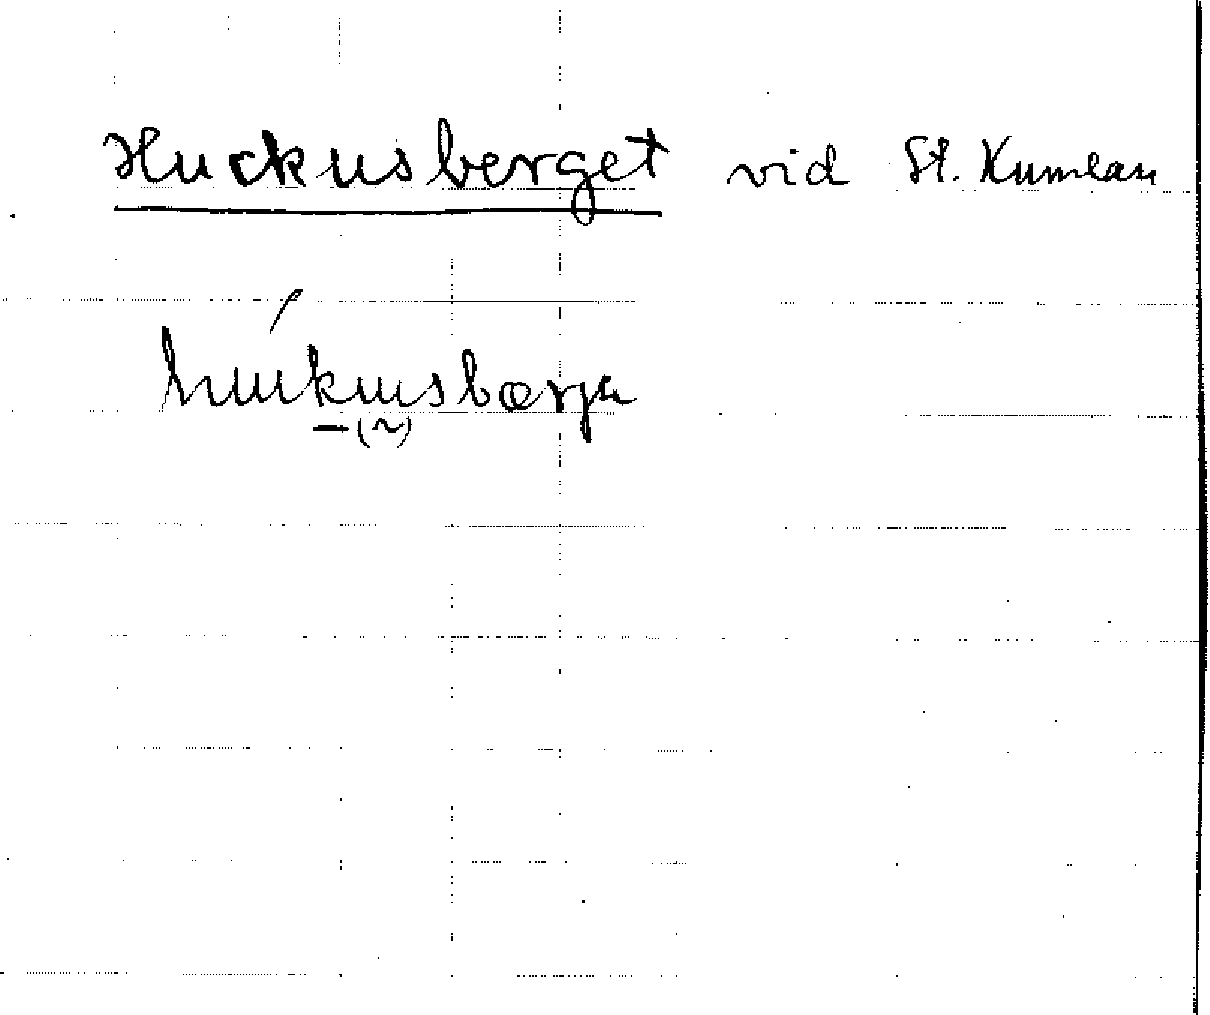 Huckusberget vid St. Kumlan
húkusbærja